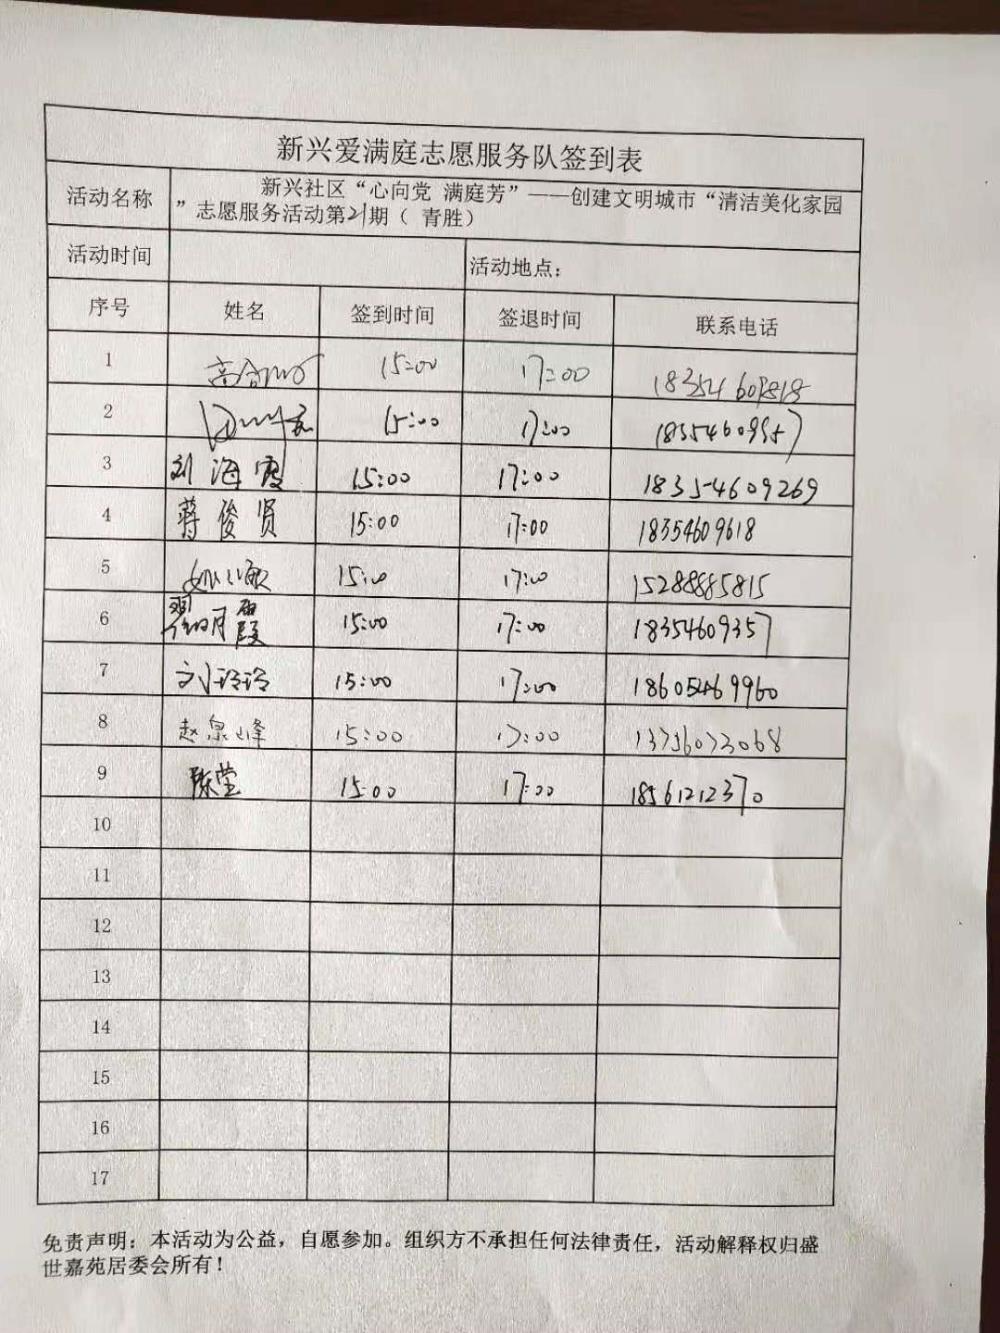 新兴爱满庭志愿服务队签到表
活动名称
新兴社区“心向党 满庭芳”——创建文明城市“清洁美化家园
”志愿服务活动第21期（ 青胜）
活动时间 活动地点：
序号 姓名 签到时间 签退时间 联系电话
1 15:00 17:00
2 15:00 17:00
3 刘海霞 15:00 17:00 18354609269
4 蒋俊贤 15:00 17:00 18354609618
5 15:00 17:00 15288885815
6 翟明霞 15:00 17:00 18354609357
7 刘玲玲 15:00 17:00 18605469960
8 赵泉峰 15:00 17:00
9 陈莹 15:00 17:00 18561212370
10
11
12
13
14
15
16
17
免责声明：本活动为公益，自愿参加。组织方不承担任何法律责任，活动解释权归盛
世嘉苑居委会所有！